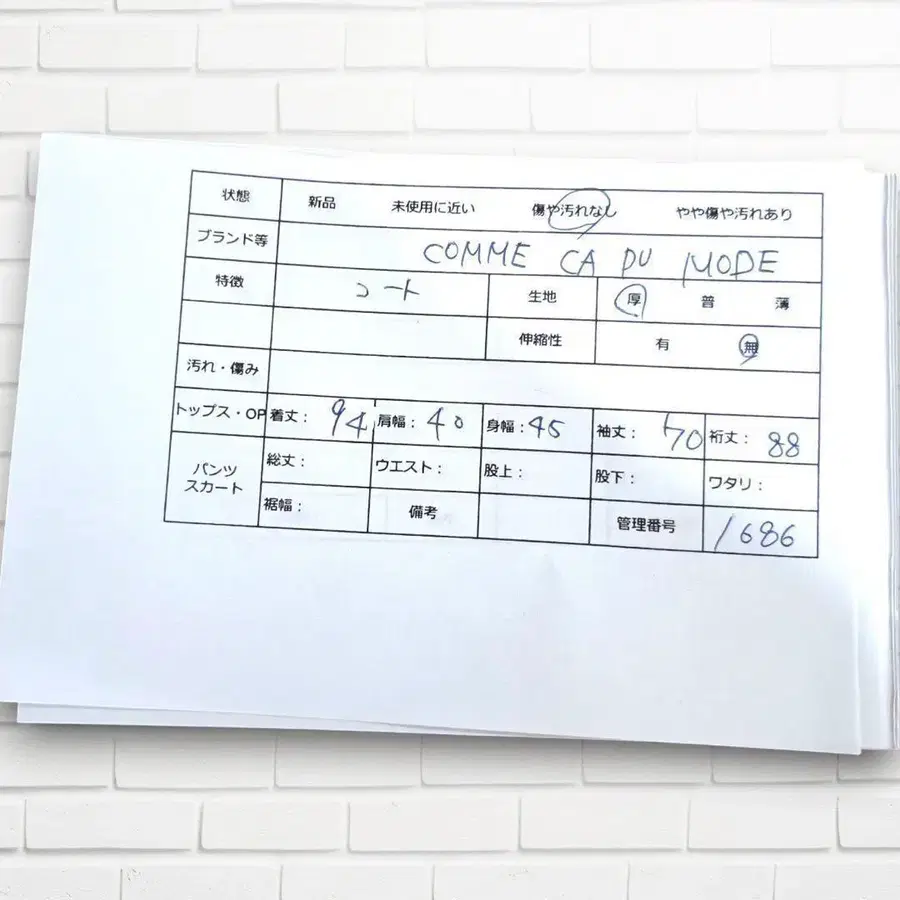 状態 新品 未使用に近い 傷や汚れなし やや傷や汚れあり
ブランド等 COMME CA DU MODE
特徴 コート 生地 厚 普 薄
伸縮性 有 無
汚れ・傷み
トップス・OP 着丈： 94 肩幅： 40 身幅： 45 袖丈： 70 裄丈： 88
パンツ スカート 総丈： ウエスト： 股上： 股下： ワタリ：
裾幅： 備考 管理番号 1686